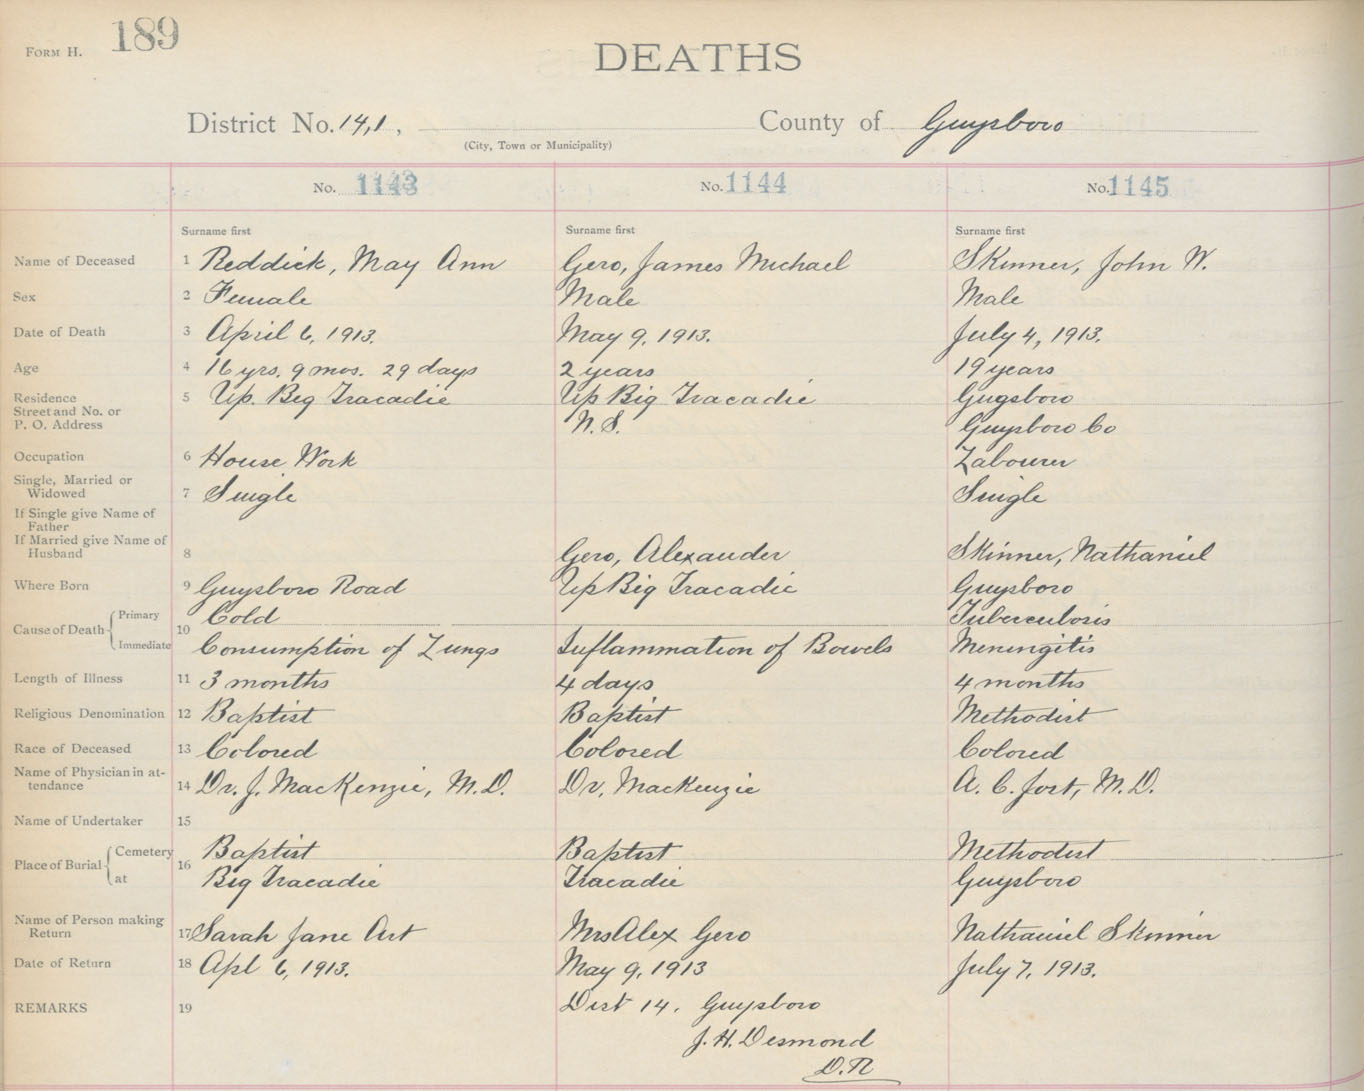 FORM H. 189
DEATHS
District No. 14,1, County of Guysboro
(City, Town or Municipality)
No. 1143 No. 1144 No. 1145
Surname first Surname first Surname first
Name of Deceased 1 Reddick, May Ann Gero, James Michael Skinner, John W.
Sex 2 Female Male Male
Date of Death 3 April 6, 1913. May 9, 1913. July 4, 1913.
Age 4 16 yrs. 9 mos. 29 days 2 years 19 years
Residence 5 Up. Big Tracadie Up Big Tracadie Guysboro
Street and No. or
P. O. Address N.S. Guysboro Co
Occupation 6 House Work Labourer
Single, Married or
Widowed 7 Single Single
If Single give Name of
Father
If Married give Name of
Husband 8 Gero, Alexander Skinner, Nathaniel
Where Born 9 Guysboro Road Up Big Tracadie Guysboro
Cause of Death Primary 10 Cold Tuberculosis
Immediate Consumption of Lungs Inflammation of Bowels Meningitis
Length of Illness 11 3 months 4 days 4 months
Religious Denomination 12 Baptist Baptist Methodist
Race of Deceased 13 Colored Colored Colored
Name of Physician in at-
tendance 14 Dr. J. MacKenzie, M.D. Dr. MacKenzie A. C. Jost, M.D.
Name of Undertaker 15
Place of Burial Cemetery 16 Baptist Baptist Methodist
at Big Tracadie Tracadie Guysboro
Name of Person making
Return 17 Sarah Jane Art Mrs Alex Gero Nathaniel Skinner
Date of Return 18 Apl 6, 1913. May 9, 1913 July 7, 1913.
REMARKS 19 Dist 14. Guysboro
J. H. Desmond
D.R